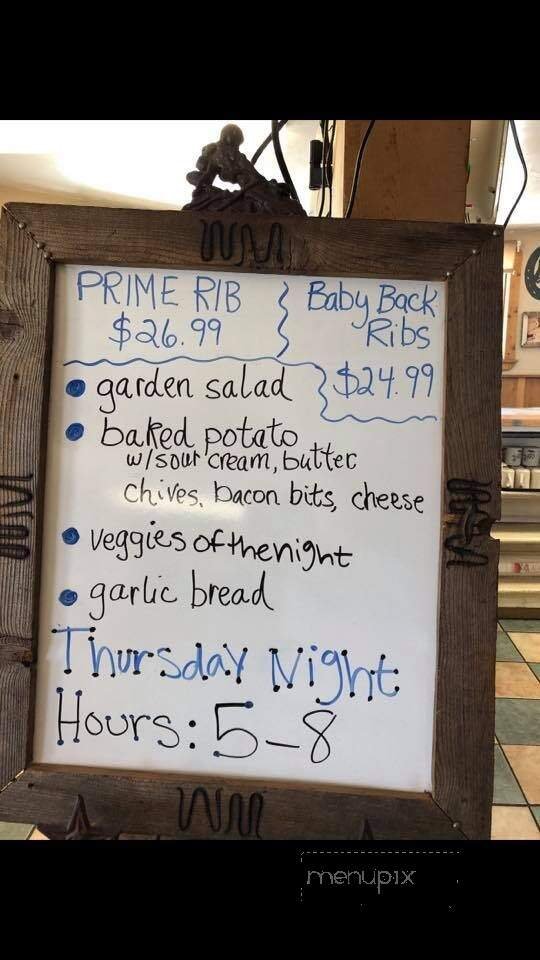 PRIME RIB
$26.99
Baby Back
Ribs
$24.99
garden salad
baked potato
w/sour cream, butter
chives, bacon bits, cheese
veggies of the night
garlic bread
Thursday Night
Hours: 5-8
menupix